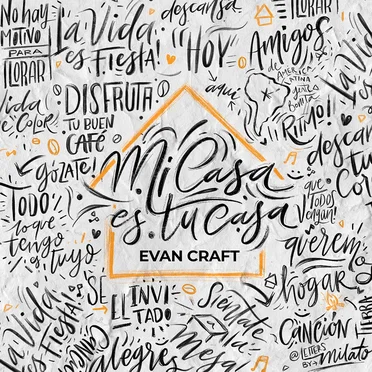 No hay
MOTIVO
PARA
LLORAR
La Vida
es Fiesta!
descansa
¡HOY
Amigos
DE
AMÉRICA
LATINA
aquí
RITMO!
Vida
Color!
DISFRUTA
TU BUEN
CAFÉ
gózate!
Mi Casa
es tu casa
EVAN CRAFT
TODO
lo que
tengo
es tuyo
descansa
tu
que
TODOS
vengan!
hogar
SÉ
EL INVI
TADO
Siéntate
Mesa
La Vida
es Fiesta!
alegres
CANCIÓN
@LETTERS
BY
milato
LLORAR